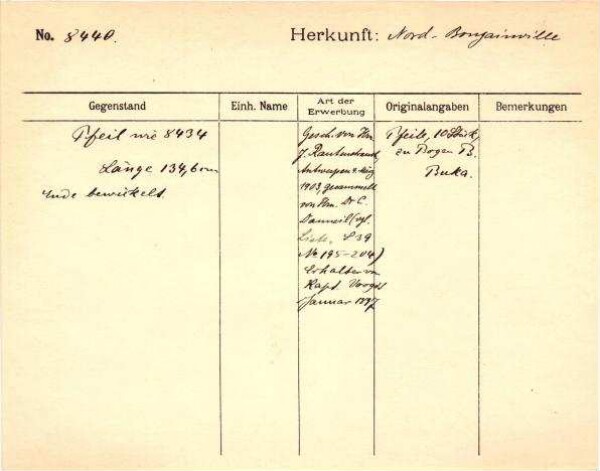 No. 8440. Herkunft: Nord-Bougainville
Gegenstand Einh. Name Art der Erwerbung Originalangaben Bemerkungen
Pfeil wie 8434
Länge 134,6 cm
Ende bewickelt.
Gesch. von Hn
J. Rautenstrauch,
Antwerpen
1903, gesammelt
von Hn. Dr C.
Danneil (vgl.
Liste, S 39
No 195-204)
Erhalten von
Kapt. Voogdt
Januar 1897
Pfeile, 10 Stück,
zu Bogen B.
Buka.